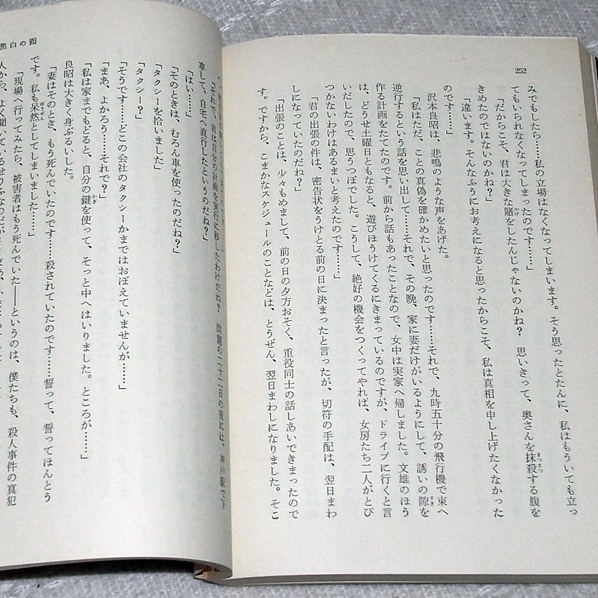 252
みでもしたら……私の立場はなくなってしまいます。そう思ったとたんに、私はもういても立っ
てもいられなくなってしまったのです」
「だからこそ、君は大きな賭をしたんじゃないのかね？　思いきって、奥さんを抹殺する腹を
きめたのではないのかね？」
「違います。そんなふうにお考えになると思ったからこそ、私は真相を申し上げたくなかった
のです……」
沢本良昭は、悲鳴のような声をあげた。
「私はただ、ことの真偽を確かめたいと思ったのです……それで、九時五十分の飛行機で東へ
逆行するという話を思い出して……それで、その晩、家に妻だけがいるようにして、誘いの隙を
作る計画をたてたのです。前から話もあったことなので、女中は実家へ帰しました。文雄のほう
は、どうせ土曜日ともなると、遊びほうけてくるにきまっているのですが、ドライブに行くと言
いだしたので、思うつぼでした。こうして、絶好の機会をつくってやれば、女房たち二人がとび
つかないわけはあるまいと考えたのです……」
「君の出張の件は、密告状をうけとる前の日に決まったと言ったが、切符の手配は、翌日まわ
しになっていたのだね？」
「出張のことは、少々もめまして、前の日の夕方おそく、重役同士の話しあいできまったので
す。ですから、こまかなスケジュールのことなどは、とうぜん、翌日まわしになりました。そこ
黒白の囮
「それで、君は自分の計画を実行に移したわけだね？　問題の二十二日の夜には、神戸駅で下
車して、自宅へ直行したというのだね？」
「はい……」
「そのときは、むろん車を使ったのだね？」
「タクシーを拾いました」
「タクシー？」
「そうです……どこの会社のタクシーかまではおぼえていませんが……」
「まあ、よかろう……それで？」
「私は家までもどると、自分の鍵を使って、そっと中へはいりました。ところが……」
良昭は大きく身ぶるいした。
「妻はそのとき、もう死んでいたのです……殺されていたのです……誓って、誓ってほんとう
です。私も呆然としてしまいました……」
「現場へ行ってみたら、被害者はもう死んでいた――というのは、僕たちも、殺人事件の真犯